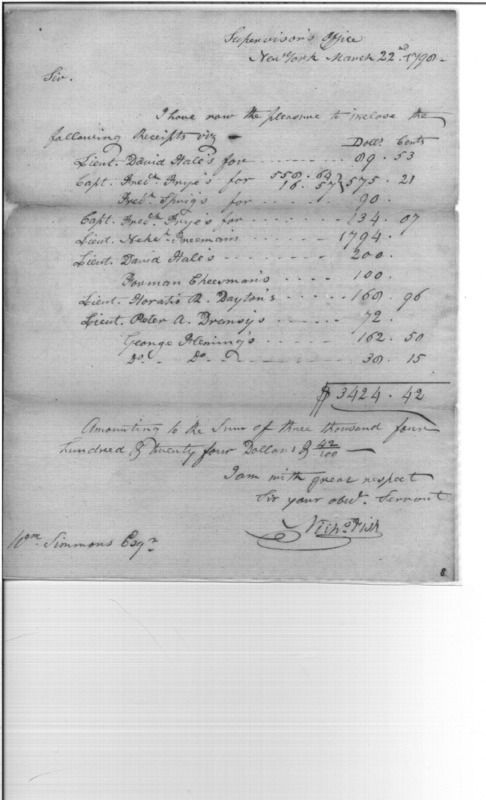 Supervisor's Office
New York March 22nd 1798
Sir.
I have now the pleasure to inclose the
following Receipts viz
Dolls. Cents
Lieut. David Hale's for 89. 53
Capt. Fredk. Frye's for 558.64 16.57 } 575. 21
Fredk. Sprig's for 90.
Capt. Fredk. Frye's for 134. 07
Lieut. Freeman's 1794.
Lieut. David Hale's 200.
Forman Cheesman's 100.
Lieut. Horatio R. Dayton's 168. 96
Lieut. Peter A. 72.
George Fleming's 162. 50
Do. Do. 38. 15
$ 3424. 42
Amounting to the Sum of three thousand four
hundred & twenty four Dollars & 42/100
I am with great respect
Sir your obedt. Servant
Nichs. Fish
Wm. Simmons Esqr.
8